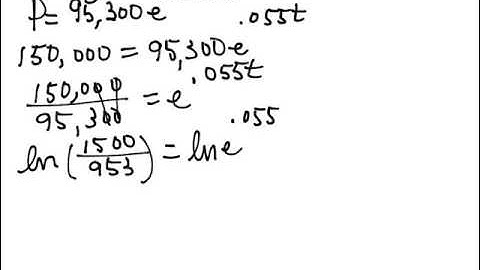 P= 95,300 e
150,000 = 95,300 e .055t
150,000 / 95,300 = e .055t
ln (1500/953) = ln e .055